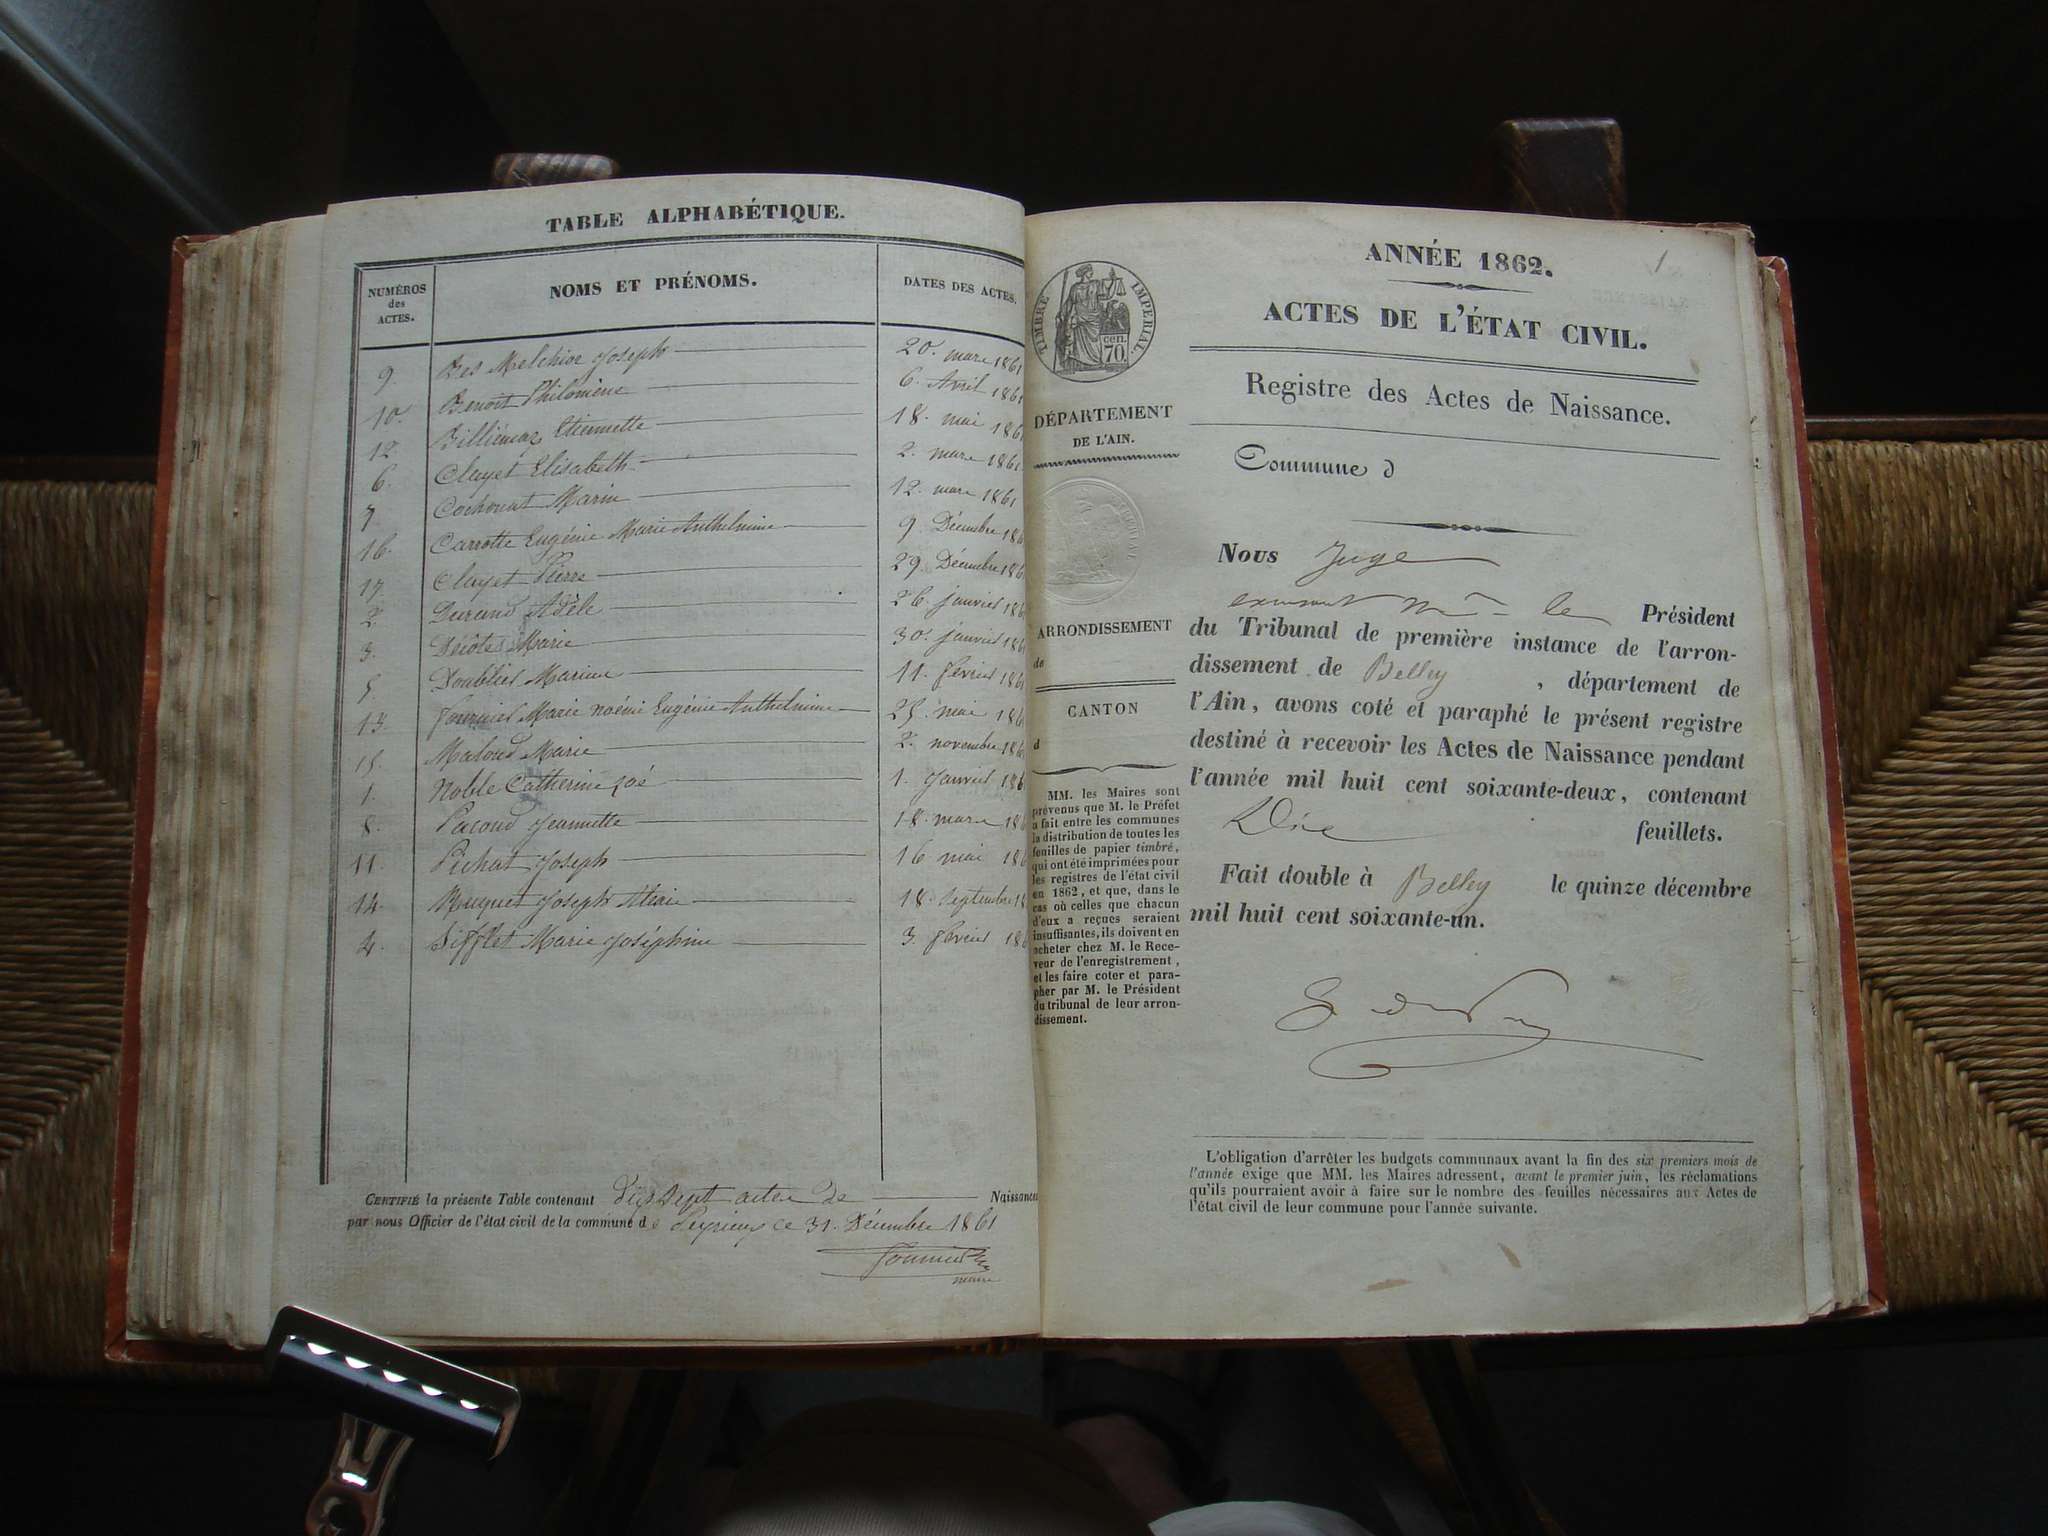 TABLE ALPHABÉTIQUE.
NUMÉROS des ACTES.
NOMS ET PRÉNOMS.
DATES DES ACTES.
9. Bes Melchior Joseph 20. mars 1861
10. Benoit Philomène 6. Avril 1861
12. Billiémaz Etiennette 18. mai 1861
6. Clayet Elisabeth 2. mars 1861
7. Cochonat Marie 12. mars 1861
16. Carrotte Eugénie Marie Anthelmine 9. Décembre 186
17. Clayet Pierre 29. Décembre 186
2. Durand Adèle 26. janvier 186
3. Décôtes Marie 30. janvier 186
5. Doublier Marie 11. février 186
13. fournier Marie noémi Eugénie Anthelmine 25. mai 186
15. Marie 2. novembre 186
1. Noble Catherine zoé 1. Janvier 186
8. Pacoud Jeannette 18. mars 186
11. Pichat Joseph 16 mai 186
14. Joseph 18. Septembre 18
4. Sifflet Marie Joséphine 3. février 186
CERTIFIÉ la présente Table contenant Dix Sept actes de Naissance
par nous Officier de l'état civil de la commune de Peyrieux ce 31. Décembre 1861
fournier
maire
1
ANNÉE 1862.
ACTES DE L'ÉTAT CIVIL.
Registre des Actes de Naissance.
Commune d
Nous Juge
le Président
du Tribunal de première instance de l'arron-
dissement de Belley , département de
l'Ain, avons coté et paraphé le présent registre
destiné à recevoir les Actes de Naissance pendant
l'année mil huit cent soixante-deux, contenant
Dix feuillets.
Fait double à Belley le quinze décembre
mil huit cent soixante-un.
L'obligation d'arrêter les budgets communaux avant la fin des six premiers mois de
l'année exige que MM. les Maires adressent, avant le premier juin, les réclamations
qu'ils pourraient avoir à faire sur le nombre des feuilles nécessaires aux Actes de
l'état civil de leur commune pour l'année suivante.
TIMBRE IMPÉRIAL.
cen. 70.
DÉPARTEMENT
DE L'AIN.
ARRONDISSEMENT
de
CANTON
d
MM. les Maires sont
prévenus que M. le Préfet
a fait entre les communes
la distribution de toutes les
feuilles de papier timbré,
qui ont été imprimées pour
les registres de l'état civil
en 1862, et que, dans le
cas où celles que chacun
d'eux a reçues seraient
insuffisantes, ils doivent en
acheter chez M. le Rece-
veur de l'enregistrement,
et les faire coter et para-
pher par M. le Président
du tribunal de leur arron-
dissement.